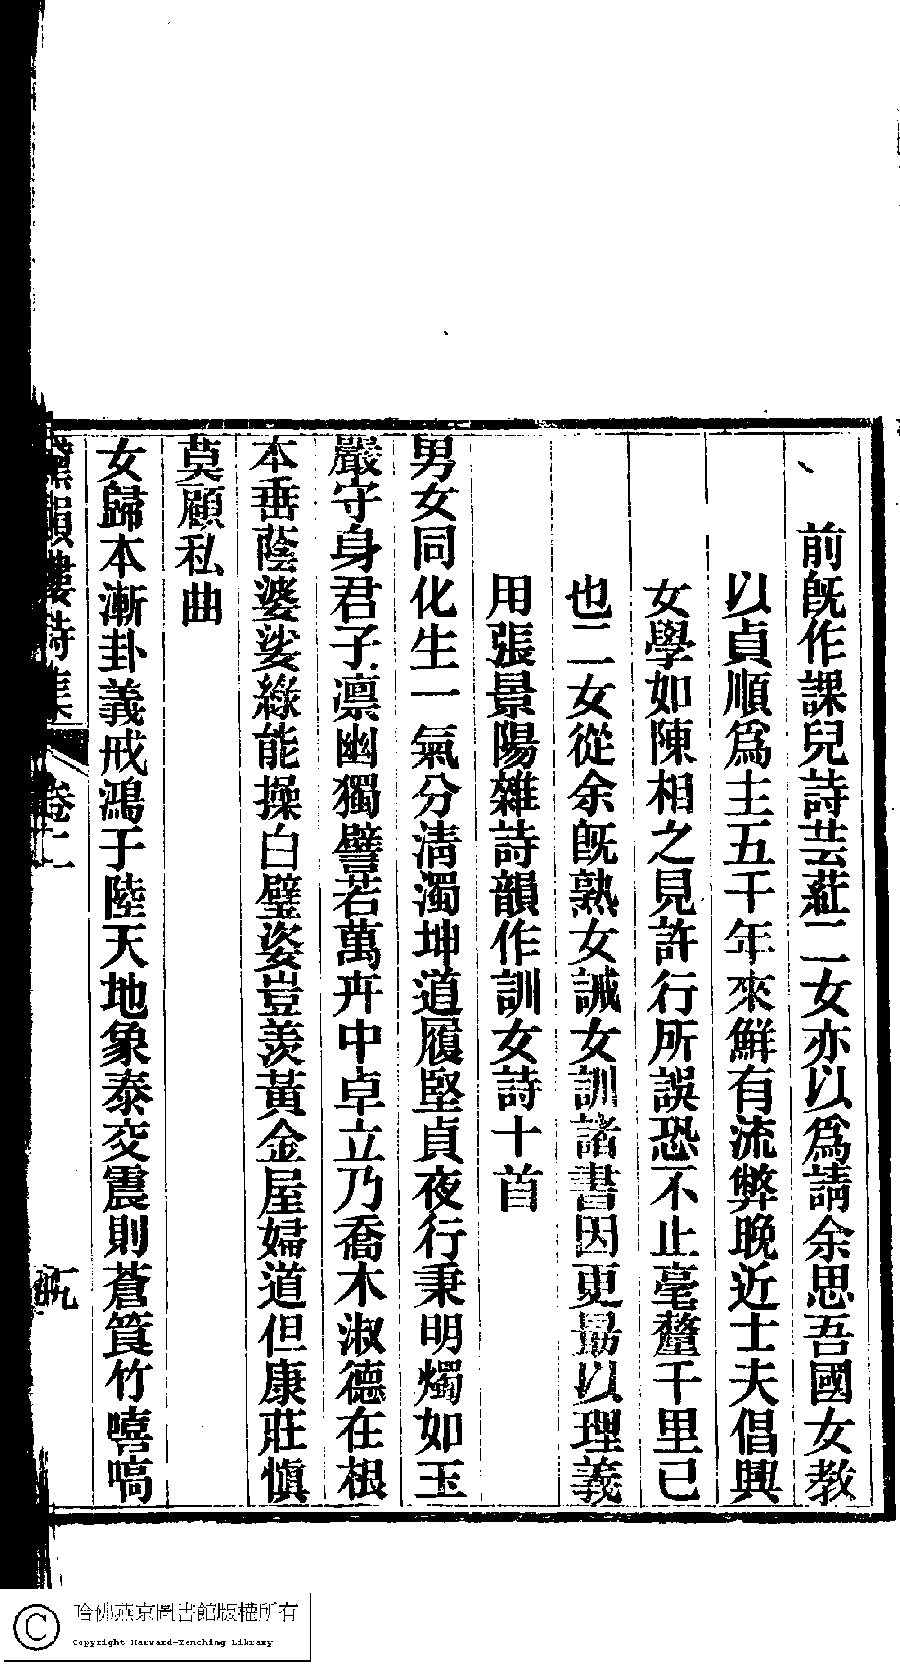 前既作課兒詩芸莊二女亦以爲請余思吾國女教
以貞順爲主五千年來鮮有流弊晚近士夫倡興
女學如陳相之見許行所誤恐不止毫釐千里已
也二女從余既熟女誡女訓諸書因更勗以理義
用張景陽雜詩韻作訓女詩十首
男女同化生一氣分清濁坤道履堅貞夜行秉明燭如玉
嚴守身君子凛幽獨譬若萬卉中卓立乃喬木淑德在根
本垂蔭婆娑綠能操白璧姿豈羨黃金屋婦道但康莊愼
莫顧私曲
女歸本漸卦義戒鴻于陸天地象泰交震則蒼筤竹嘻嗃
黛韻樓詩集
卷二
九
哈佛燕京圖書館版權所有
Copyright Harvard-Yenching Library